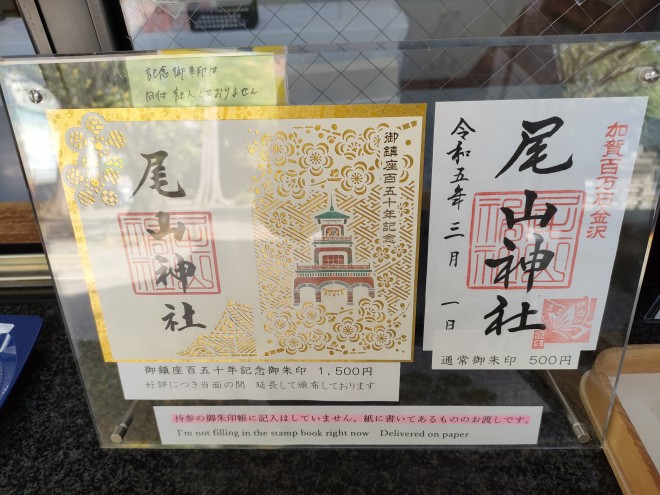 記念御朱印は
日付記入しておりません
尾山神社
御鎮座百五十年記念
御鎮座百五十年記念御朱印 1,500円
好評につき当面の間 延長して頒布しております
加賀百万石金沢
尾山神社
令和五年三月一日
通常御朱印 500円
持参の御朱印帳に記入はしていません。紙に書いてあるもののお渡しです。
I'm not filling in the stamp book right now Delivered on paper